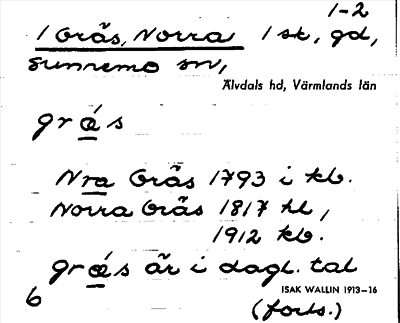 1-2
1 Gräs, Norra 1 sk, gd,
Gunnemo sn,
Älvdals hd, Värmlands län
gräs
Nra Gräs 1793 i kb.
Norra Gräs 1817 hl,
1912 kb.
gräs är i dagl. tal
ISAK WALLIN 1913–16
6 (forts.)